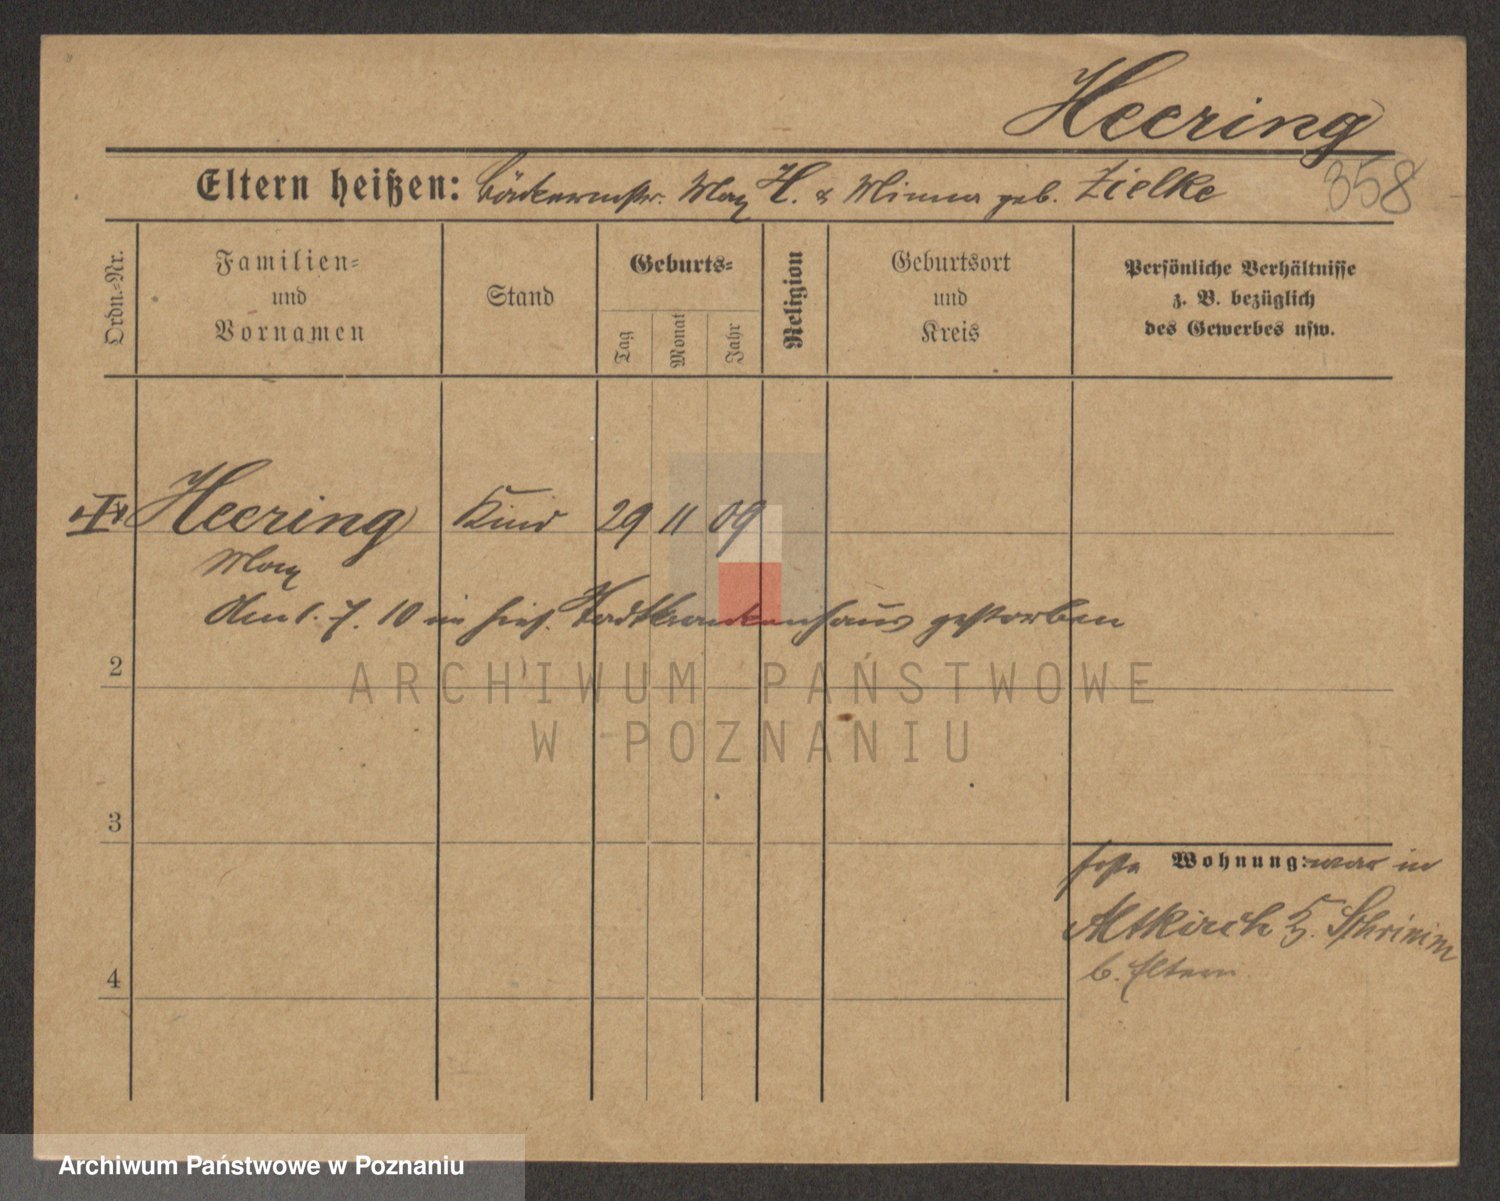 Heering
358
Eltern heißen: Bäckermstr. Max H. & Minna geb. Zielke
Ordn.-Nr.
Familien- und Vornamen
Stand
Geburts-
Tag
Monat
Jahr
Religion
Geburtsort und Kreis
Persönliche Verhältnisse
z. B. bezüglich
des Gewerbes usw.
Heering Kind 29 11 09
Max
Am 1. 7. 10 im hies. Stadtkrankenhaus gestorben
2
ARCHIWUM PAŃSTWOWE
W POZNANIU
3
Wohnung: war in
Altkirch Kr. Schrimm
b. Eltern
4
Archiwum Państwowe w Poznaniu